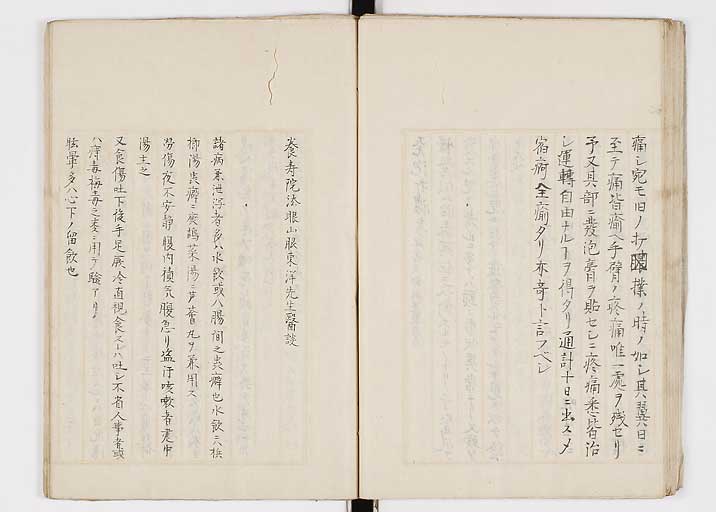 痛シ宛モ旧ノ打撲ノ時ノ如シ其翼六日ニ
至テ痛皆癒ヘ手臂ノ疼痛唯一處ヲ残セリ
予又其部ニ發泡膏ヲ貼セシニ疼痛悉皆治
シ運轉自由ナルヿヲ得タリ通計十日ニ出スメ
宿痾全癒タリ亦奇ト言フベシ
養寿院法眼山脇東洋先生醫談
諸病兼泄瀉者多ハ水飲或ハ腸間之癖也水飲ニハ
柳湯癖ニハ湯ニ芦薈丸ヲ兼用ス
労傷夜不安静腹内積気腹急リ盗汗咳嗽者建中
湯主之
又食傷吐下後手足厥冷直視食スレハ吐シ不省人事者或
ハ痔毒梅毒之類ニ用テ驗アリ
眩暈多ハ心下ノ留飲也